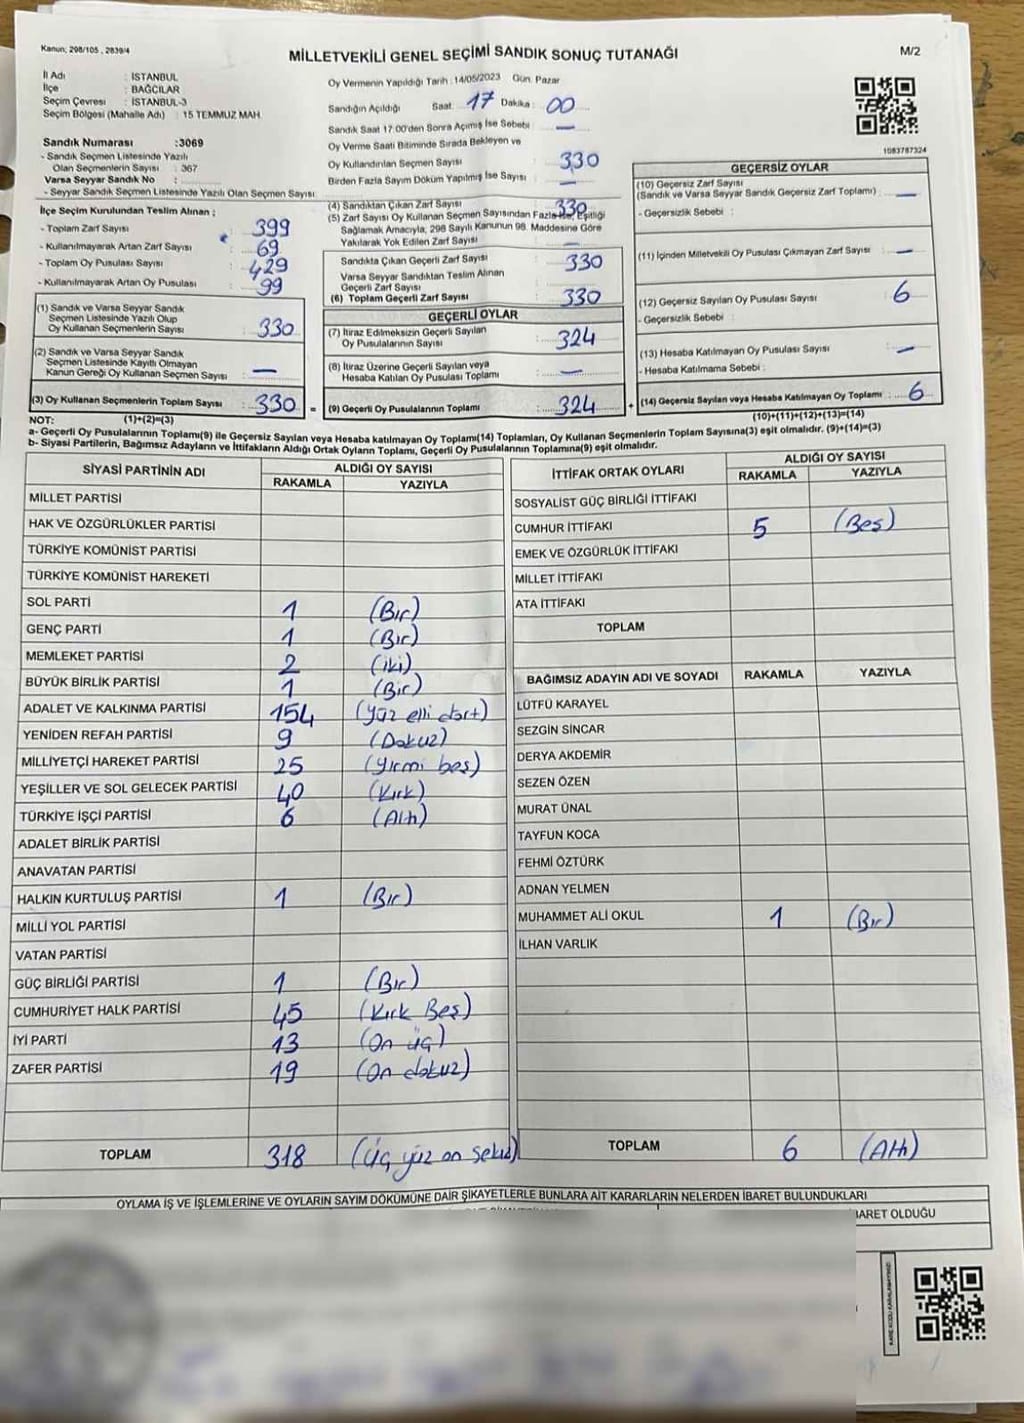 Kanun; 298/105 , 2839/4
MİLLETVEKİLİ GENEL SEÇİMİ SANDIK SONUÇ TUTANAĞI
M/2
İl Adı : İSTANBUL
İlçe : BAĞCILAR
Seçim Çevresi : İSTANBUL-3
Seçim Bölgesi (Mahalle Adı) : 15 TEMMUZ MAH.
Sandık Numarası :3069
- Sandık Seçmen Listesinde Yazılı
Olan Seçmenlerin Sayısı : 367
Varsa Seyyar Sandık No :
- Seyyar Sandık Seçmen Listesinde Yazılı Olan Seçmen Sayısı
Oy Vermenin Yapıldığı Tarih : 14/05/2023 Gün: Pazar
Sandığın Açıldığı Saat: 17 Dakika : 00
Sandık Saat 17:00'den Sonra Açmış İse Sebebi : —
Oy Verme Saati Bitiminde Sırada Bekleyen ve
Oy Kullandırılan Seçmen Sayısı : 330
Birden Fazla Sayım Döküm Yapılmış İse Sayısı : —
1083787324
İlçe Seçim Kurulundan Teslim Alınan ;
- Toplam Zarf Sayısı : 399
- Kullanılmayarak Artan Zarf Sayısı : 69
- Toplam Oy Pusulası Sayısı : 429
- Kullanılmayarak Artan Oy Pusulası : 99
(1) Sandık ve Varsa Seyyar Sandık
Seçmen Listesinde Yazılı Olup
Oy Kullanan Seçmenlerin Sayısı : 330
(2) Sandık ve Varsa Seyyar Sandık
Seçmen Listesinde Kayıtlı Olmayan
Kanun Gereği Oy Kullanan Seçmen Sayısı : —
(3) Oy Kullanan Seçmenlerin Toplam Sayısı : 330 =
(4) Sandıktan Çıkan Zarf Sayısı : 330
(5) Zarf Sayısı Oy Kullanan Seçmen Sayısından Fazla İse, Eşitliği
Sağlamak Amacıyla, 298 Sayılı Kanunun 98. Maddesine Göre
Yakılarak Yok Edilen Zarf Sayısı : —
Sandıkta Çıkan Geçerli Zarf Sayısı : 330
Varsa Seyyar Sandıktan Teslim Alınan
Geçerli Zarf Sayısı
(6) Toplam Geçerli Zarf Sayısı : 330
GEÇERLİ OYLAR
(7) İtiraz Edilmeksizin Geçerli Sayılan
Oy Pusulalarının Sayısı : 324
(8) İtiraz Üzerine Geçerli Sayılan veya
Hesaba Katılan Oy Pusulası Toplamı : —
(9) Geçerli Oy Pusulalarının Toplamı : 324 +
GEÇERSİZ OYLAR
(10) Geçersiz Zarf Sayısı
(Sandık ve Varsa Seyyar Sandık Geçersiz Zarf Toplamı) : —
- Geçersizlik Sebebi :
(11) İçinden Milletvekili Oy Pusulası Çıkmayan Zarf Sayısı : —
(12) Geçersiz Sayılan Oy Pusulası Sayısı : 6
- Geçersizlik Sebebi :
(13) Hesaba Katılmayan Oy Pusulası Sayısı : —
- Hesaba Katılmama Sebebi :
(14) Geçersiz Sayılan veya Hesaba Katılmayan Oy Toplamı : 6
NOT: (1)+(2)=(3)
(10)+(11)+(12)+(13)=(14)
a- Geçerli Oy Pusulalarının Toplamı(9) ile Geçersiz Sayılan veya Hesaba katılmayan Oy Toplamı(14) Toplamları, Oy Kullanan Seçmenlerin Toplam Sayısına(3) eşit olmalıdır. (9)+(14)=(3)
b- Siyasi Partilerin, Bağımsız Adayların ve İttifakların Aldığı Ortak Oyların Toplamı, Geçerli Oy Pusulalarının Toplamına(9) eşit olmalıdır.
SİYASİ PARTİNİN ADI ALDIĞI OY SAYISI
RAKAMLA YAZIYLA
MİLLET PARTİSİ
HAK VE ÖZGÜRLÜKLER PARTİSİ
TÜRKİYE KOMÜNİST PARTİSİ
TÜRKİYE KOMÜNİST HAREKETİ
SOL PARTİ 1 (Bir)
GENÇ PARTİ 1 (Bir)
MEMLEKET PARTİSİ 2 (iki)
BÜYÜK BİRLİK PARTİSİ 1 (Bir)
ADALET VE KALKINMA PARTİSİ 154 (Yüz elli dört)
YENİDEN REFAH PARTİSİ 9 (Dokuz)
MİLLİYETÇİ HAREKET PARTİSİ 25 (Yirmi beş)
YEŞİLLER VE SOL GELECEK PARTİSİ 40 (Kırk)
TÜRKİYE İŞÇİ PARTİSİ 6 (Altı)
ADALET BİRLİK PARTİSİ
ANAVATAN PARTİSİ
HALKIN KURTULUŞ PARTİSİ 1 (Bir)
MİLLİ YOL PARTİSİ
VATAN PARTİSİ
GÜÇ BİRLİĞİ PARTİSİ 1 (Bir)
CUMHURİYET HALK PARTİSİ 45 (Kırk Beş)
İYİ PARTİ 13 (On üç)
ZAFER PARTİSİ 19 (On dokuz)
TOPLAM 318 (Üç yüz on sekiz)
İTTİFAK ORTAK OYLARI ALDIĞI OY SAYISI
RAKAMLA YAZIYLA
SOSYALİST GÜÇ BİRLİĞİ İTTİFAKI
CUMHUR İTTİFAKI 5 (Beş)
EMEK VE ÖZGÜRLÜK İTTİFAKI
MİLLET İTTİFAKI
ATA İTTİFAKI
TOPLAM
BAĞIMSIZ ADAYIN ADI VE SOYADI RAKAMLA YAZIYLA
LÜTFÜ KARAYEL
SEZGİN SİNCAR
DERYA AKDEMİR
SEZEN ÖZEN
MURAT ÜNAL
TAYFUN KOCA
FEHMİ ÖZTÜRK
ADNAN YELMEN
MUHAMMET ALİ OKUL 1 (Bir)
İLHAN VARLIK
TOPLAM 6 (Altı)
OYLAMA İŞ VE İŞLEMLERİNE VE OYLARIN SAYIM DÖKÜMÜNE DAİR ŞİKAYETLERLE BUNLARA AİT KARARLARIN NELERDEN İBARET BULUNDUKLARI
BARET OLDUĞU